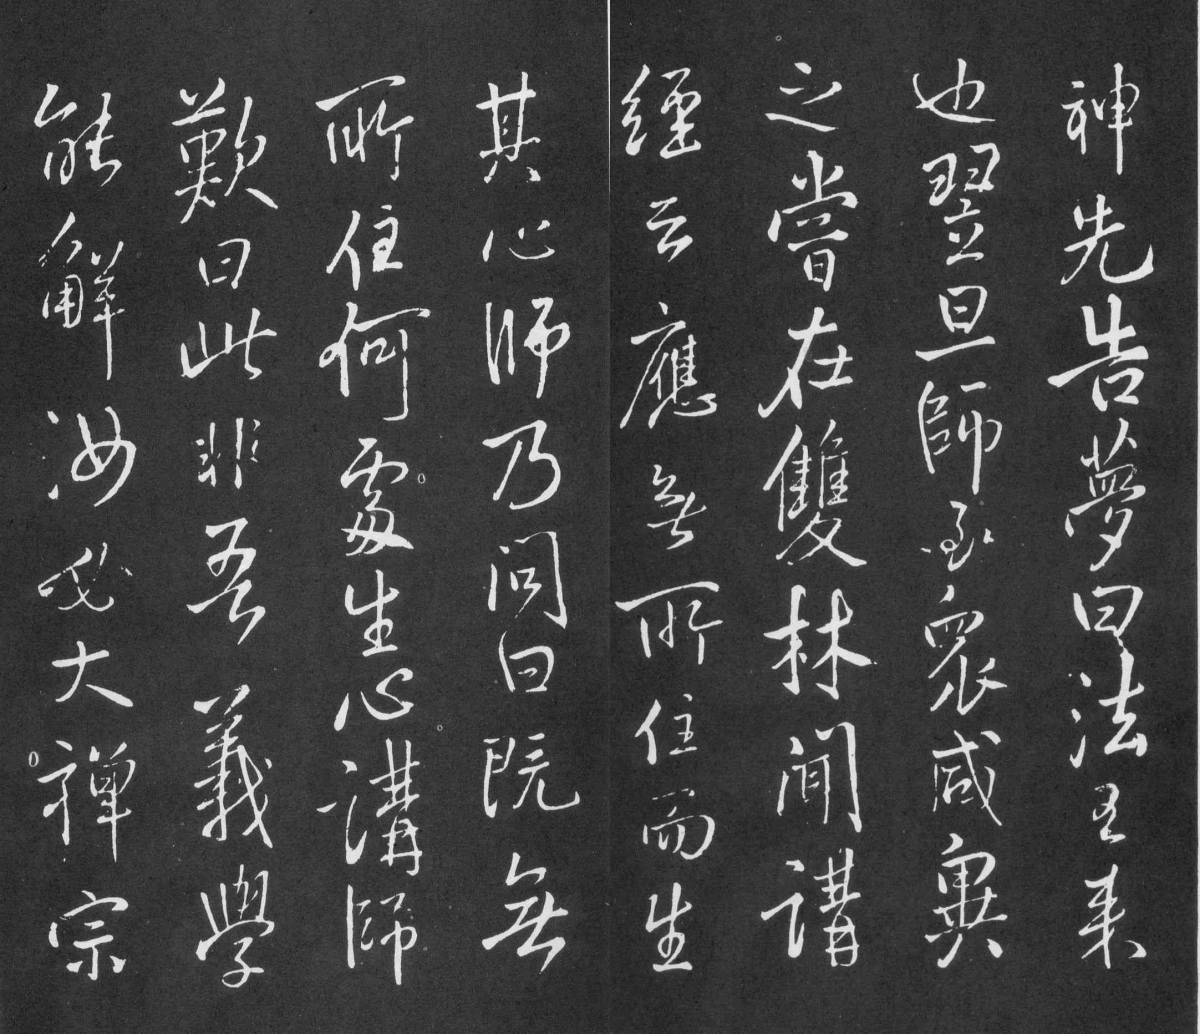 神先告夢曰法来
也翌旦師至衆咸異
之嘗在雙林聞講
經云應無所住而生
其心師乃問曰既無
所住何處生心講師
歎曰此非吾義學
能解汝必大禪宗